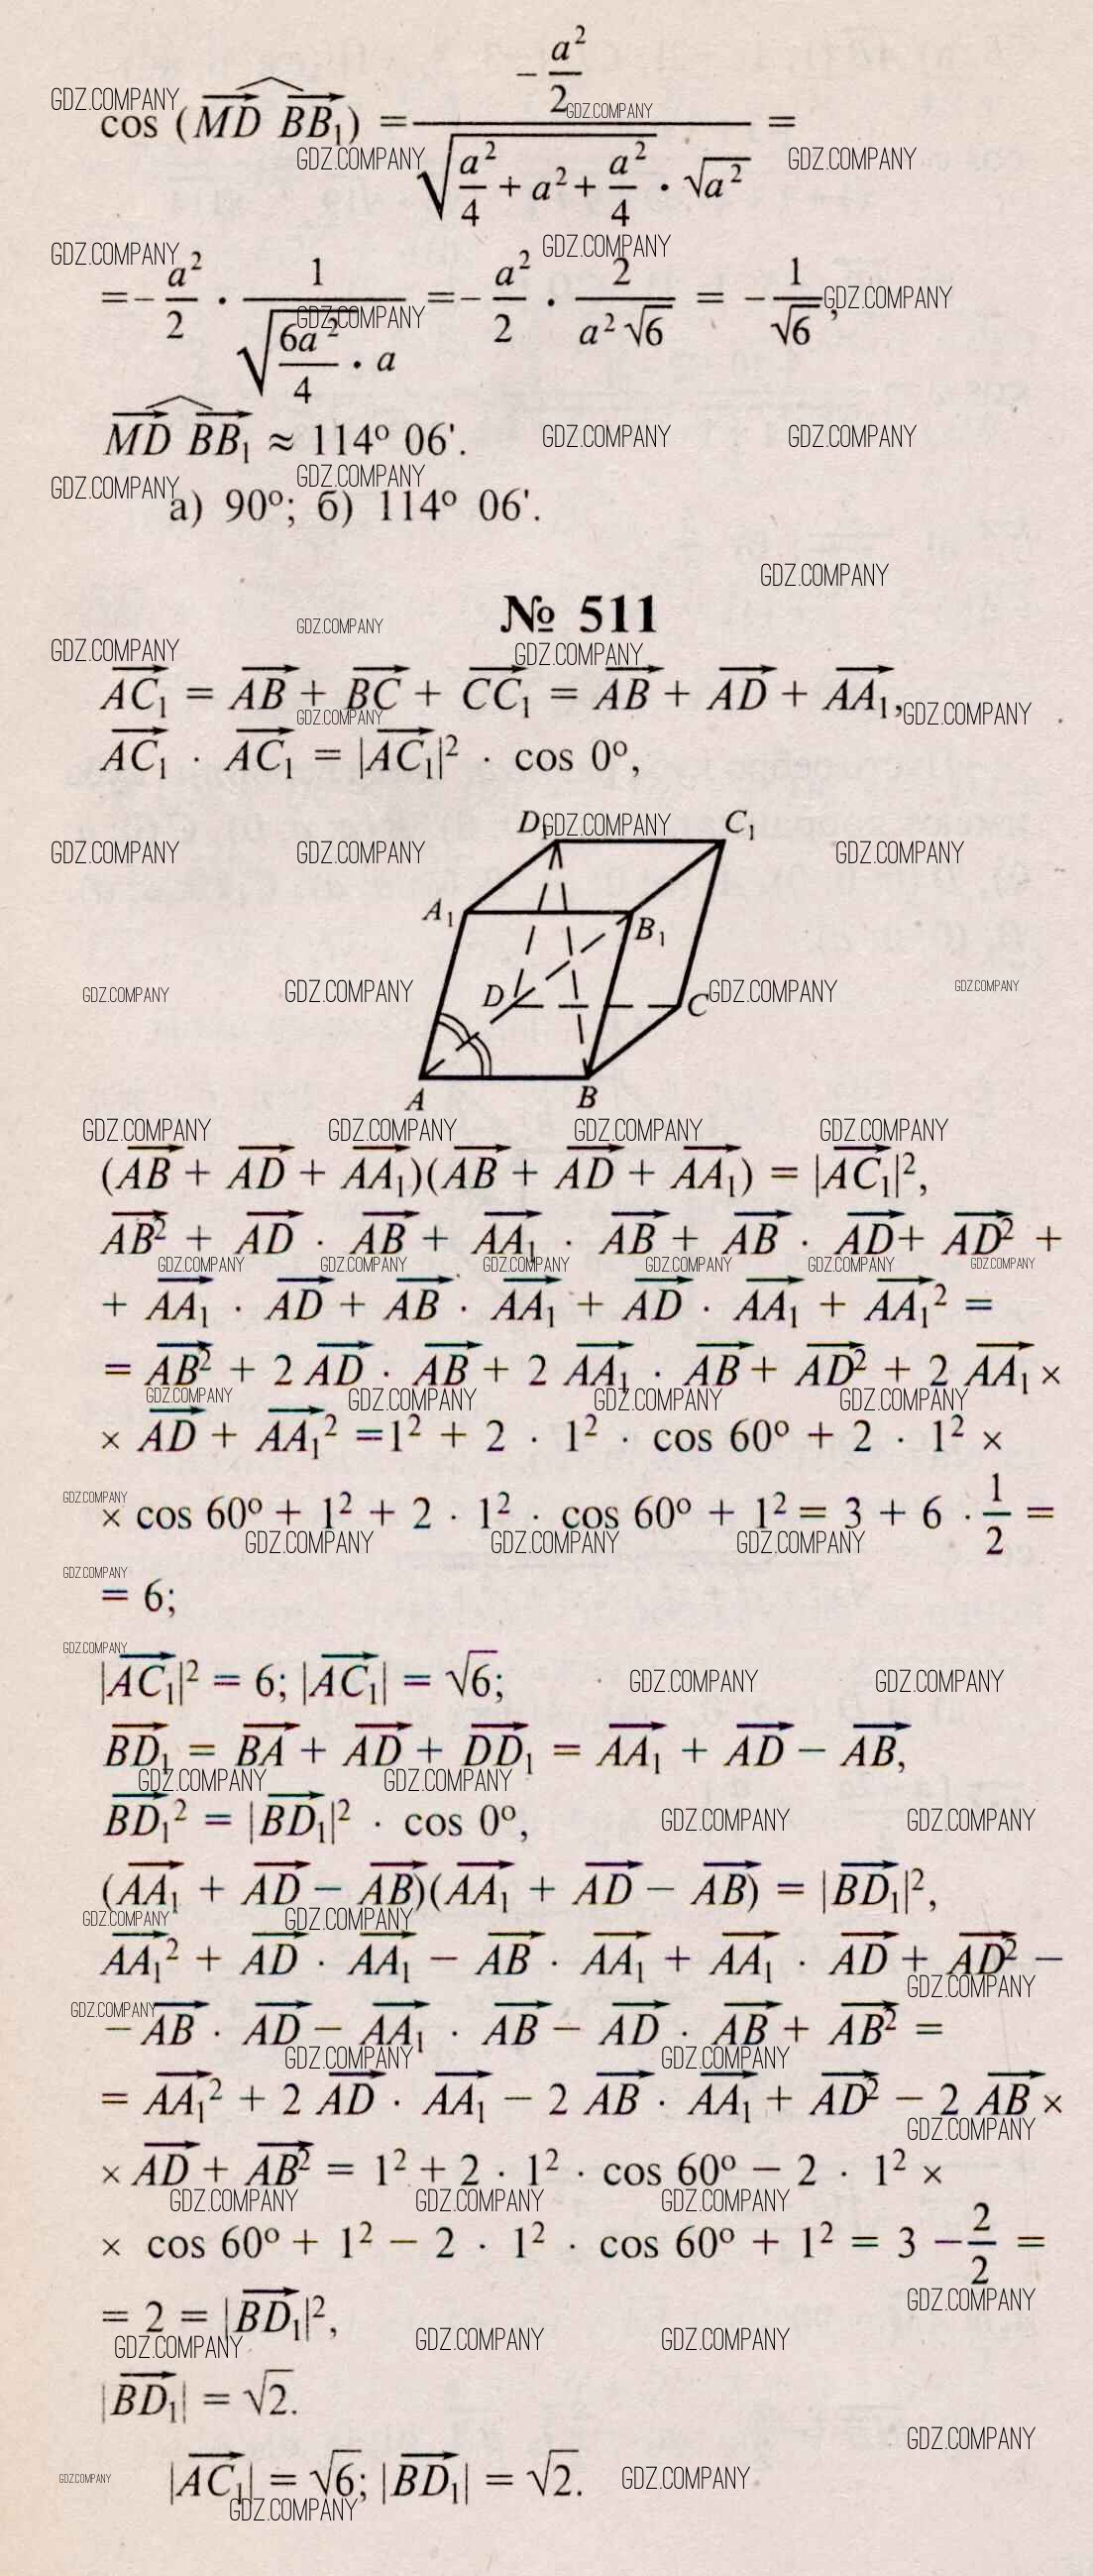 cos (MD BB₁) = (-a²/2) / (√(a²/4 + a² + a²/4) · √a²) =
= -a²/2 · 1/(√(6a²/4) · a) = -a²/2 · 2/(a²√6) = -1/√6,
MD BB₁ ≈ 114º 06'.
а) 90º; б) 114º 06'.
№ 511
AC₁ = AB + BC + CC₁ = AB + AD + AA₁,
AC₁ · AC₁ = |AC₁|² · cos 0º,
D₁ C₁
A₁ B₁
D C
A B
(AB + AD + AA₁)(AB + AD + AA₁) = |AC₁|²,
AB² + AD · AB + AA₁ · AB + AB · AD + AD² +
+ AA₁ · AD + AB · AA₁ + AD · AA₁ + AA₁² =
= AB² + 2 AD · AB + 2 AA₁ · AB + AD² + 2 AA₁ ×
× AD + AA₁² = 1² + 2 · 1² · cos 60º + 2 · 1² ×
× cos 60º + 1² + 2 · 1² · cos 60º + 1² = 3 + 6 · 1/2 =
= 6;
|AC₁|² = 6; |AC₁| = √6;
BD₁ = BA + AD + DD₁ = AA₁ + AD − AB,
BD₁² = |BD₁|² · cos 0º,
(AA₁ + AD − AB)(AA₁ + AD − AB) = |BD₁|²,
AA₁² + AD · AA₁ − AB · AA₁ + AA₁ · AD + AD² −
− AB · AD − AA₁ · AB − AD · AB + AB² =
= AA₁² + 2 AD · AA₁ − 2 AB · AA₁ + AD² − 2 AB ×
× AD + AB² = 1² + 2 · 1² · cos 60º − 2 · 1² ×
× cos 60º + 1² − 2 · 1² · cos 60º + 1² = 3 − 2/2 =
= 2 = |BD₁|²,
|BD₁| = √2.
|AC₁| = √6; |BD₁| = √2.
GDZ.COMPANY